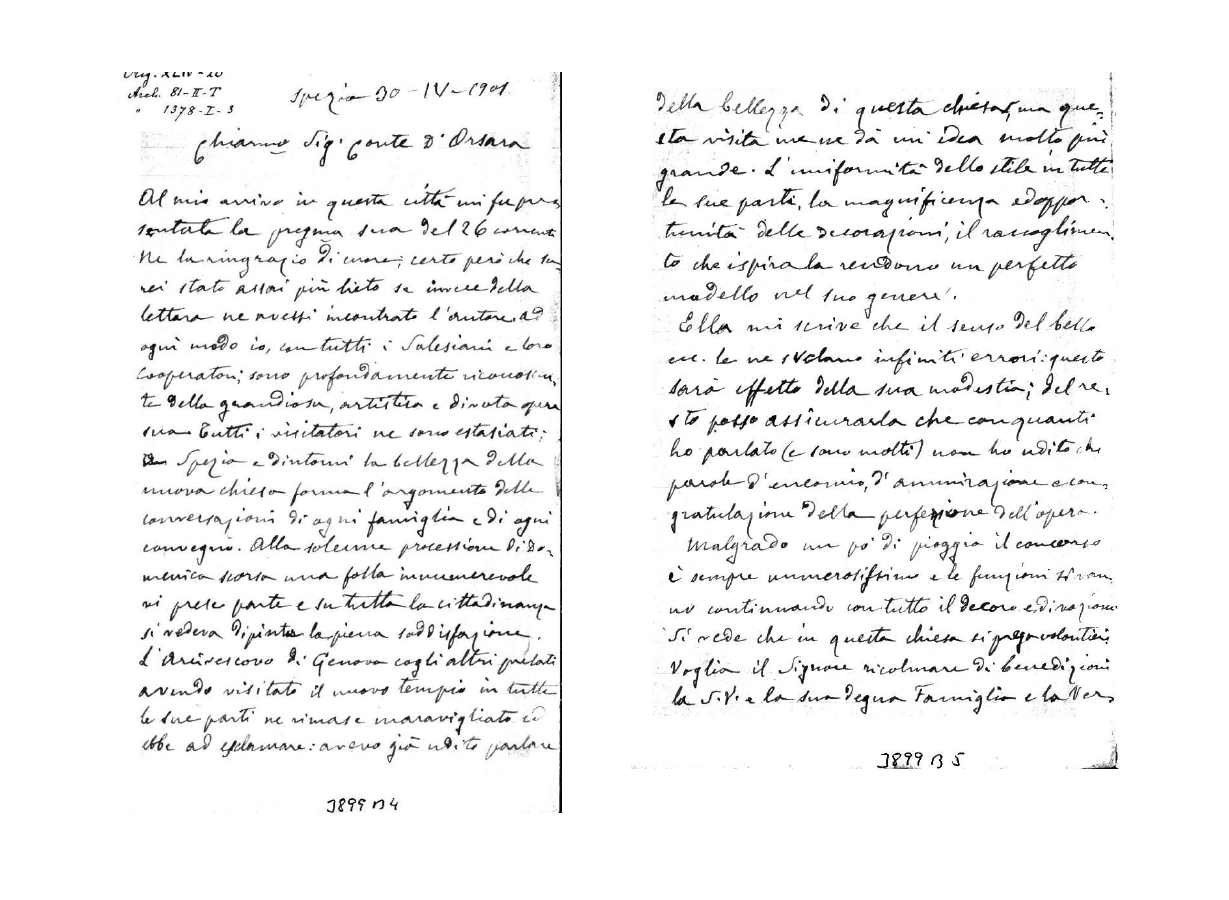 Orig. XLIV-20
Arch. 81-II-T
" 1378-I-3
Spezia 30-IV-1901
Chiarmo Sig. Conte D'Orsara
Al mio arrivo in questa città mi fu pre
sentata la pregma sua del 26 corrente
Ne la ringrazio di cuore; certo però che sa-
rei stato assai più lieto se invece della
lettera ne avessi incontrato l'autore. ad
ogni modo io, con tutti i Salesiani e loro
Cooperatori, sono profondamente riconoscen-
te della grandiosa, artistica e divota opera
sua. Tutti i visitatori ne sono estasiati;
Spezia e dintorni la bellezza della
nuova chiesa forma l'argomento delle
conversazioni di ogni famiglia e di ogni
convegno. Alla solenne processione di Do-
menica scorsa una folla innumerevole
vi prese parte e su tutta la cittadinanza
si vedeva dipinta la piena soddisfazione.
L'Arcivescovo di Genova cogli altri prelati
avendo visitato il nuovo tempio in tutte
le sue parti ne rimase maravigliato ed
ebbe ad esclamare: avevo già udito parlare
3899 B 4
della bellezza di questa chiesa, ma que-
sta visita me ne dà un'idea molto più
grande. L'uniformità dello stile in tutte
le sue parti, la magnificenza ed oppor-
tunità delle decorazioni, il raccoglimen-
to che ispira la rendono un perfetto
modello nel suo genere.
Ella mi scrive che il senso del bello
ecc. le ne svelano infiniti errori: questo
sarà effetto della sua modestia; del re-
sto posso assicurarla che con quanti
ho parlato (e sono molti) non ho udito che
parole d'encomio, d'ammirazione e con-
gratulazione della perfezione dell'opera.
Malgrado un po' di pioggia il concorso
è sempre numerosissimo e le funzioni si van-
no continuando con tutto il decoro e divozione
Si vede che in questa chiesa si prega volontieri
Voglia il Signore ricolmare di benedizioni
la S.V. e la sua degna Famiglia e la Ver-
3899 B 5